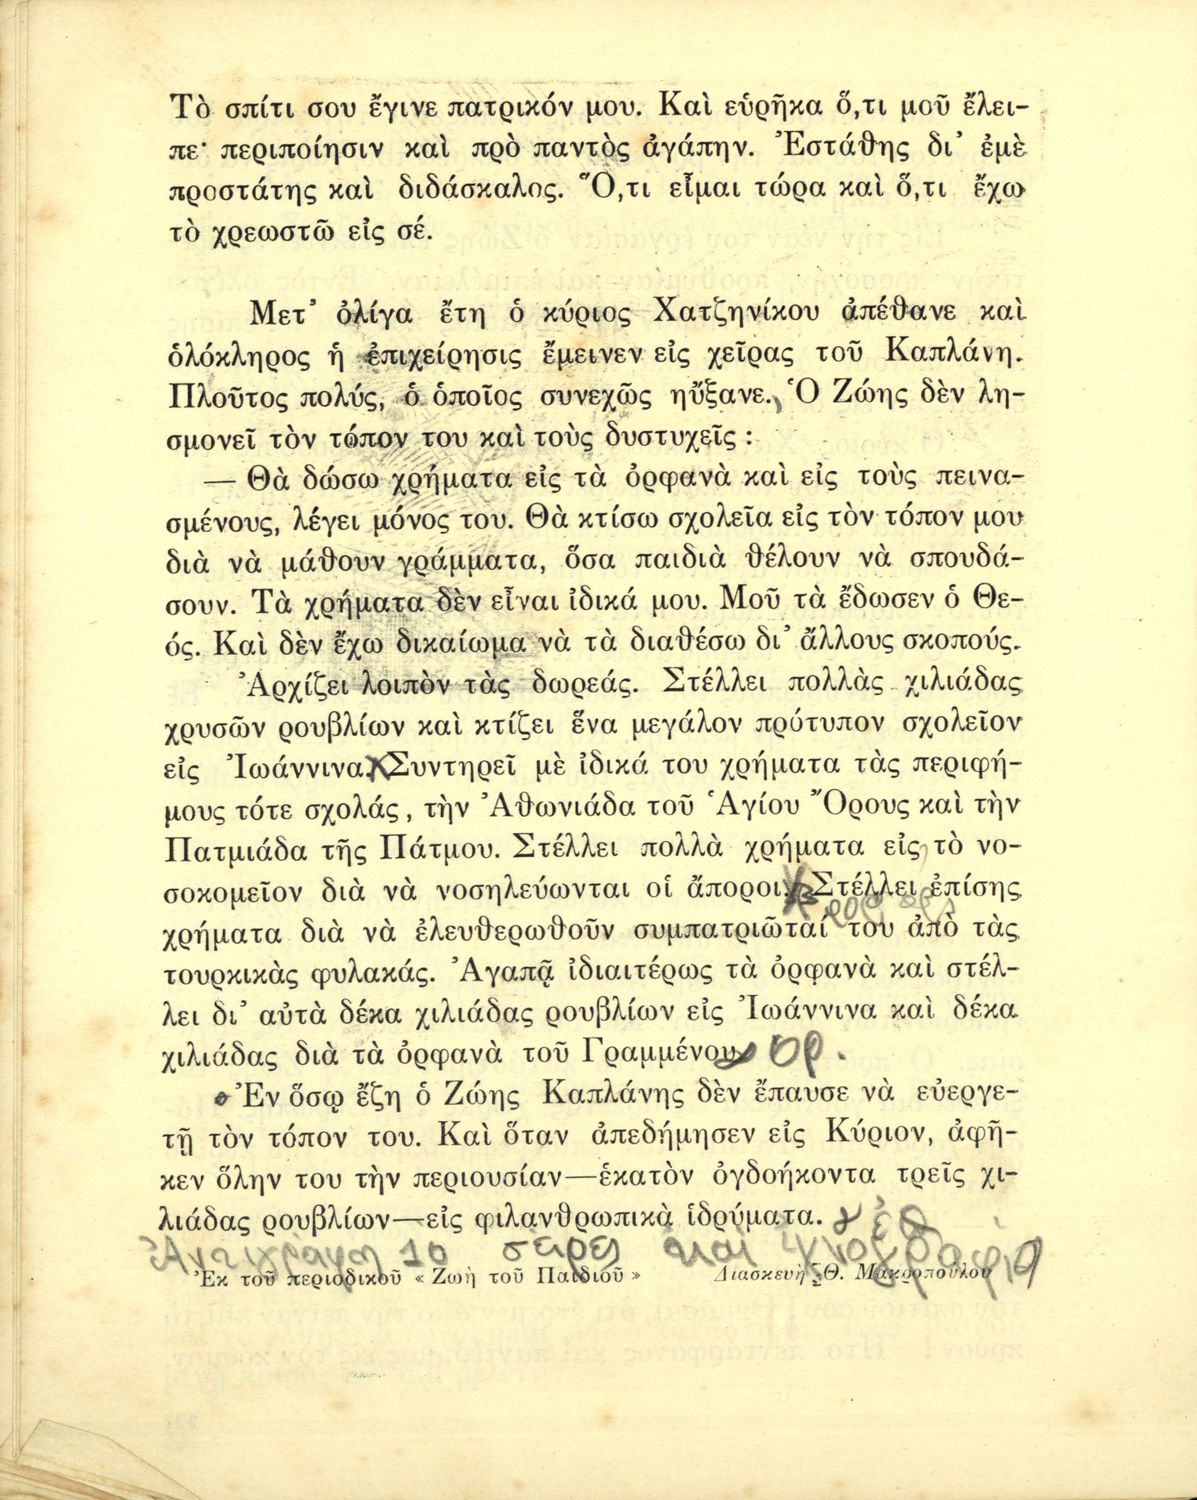 Τὸ σπίτι σου ἔγινε πατρικόν μου. Καὶ εὑρῆκα ὅ,τι μοῦ ἔλει-
πε· περιποίησιν καὶ πρὸ παντὸς ἀγάπην. Ἐστάθης δι’ ἐμὲ
προστάτης καὶ διδάσκαλος. Ὅ,τι εἶμαι τώρα καὶ ὅ,τι ἔχω
τὸ χρεωστῶ εἰς σέ.
Μετ’ ὀλίγα ἔτη ὁ κύριος Χατζηνίκου ἀπέθανε καὶ
ὁλόκληρος ἡ ἐπιχείρησις ἔμεινεν εἰς χεῖρας τοῦ Καπλάνη.
Πλοῦτος πολύς, ὁ ὁποῖος συνεχῶς ηὔξανε. Ὁ Ζώης δὲν λη-
σμονεῖ τὸν τόπον του καὶ τοὺς δυστυχεῖς :
— Θὰ δώσω χρήματα εἰς τὰ ὀρφανὰ καὶ εἰς τοὺς πεινα-
σμένους, λέγει μόνος του. Θὰ κτίσω σχολεῖα εἰς τὸν τόπον μου
διὰ νὰ μάθουν γράμματα, ὅσα παιδιὰ θέλουν νὰ σπουδά-
σουν. Τὰ χρήματα δὲν εἶναι ἰδικά μου. Μοῦ τὰ ἔδωσεν ὁ Θε-
ός. Καὶ δὲν ἔχω δικαίωμα νὰ τὰ διαθέσω δι’ ἄλλους σκοπούς.
Ἀρχίζει λοιπὸν τὰς δωρεάς. Στέλλει πολλὰς χιλιάδας
χρυσῶν ρουβλίων καὶ κτίζει ἕνα μεγάλον πρότυπον σχολεῖον
εἰς Ἰωάννινα. Συντηρεῖ μὲ ἰδικά του χρήματα τὰς περιφή-
μους τότε σχολάς, τὴν Ἀθωνιάδα τοῦ Ἁγίου Ὄρους καὶ τὴν
Πατμιάδα τῆς Πάτμου. Στέλλει πολλὰ χρήματα εἰς τὸ νο-
σοκομεῖον διὰ νὰ νοσηλεύωνται οἱ ἄποροι. Στέλλει ἐπίσης
χρήματα διὰ νὰ ἐλευθερωθοῦν συμπατριῶταί του ἀπὸ τὰς
τουρκικὰς φυλακάς. Ἀγαπᾷ ἰδιαιτέρως τὰ ὀρφανὰ καὶ στέλ-
λει δι’ αὐτὰ δέκα χιλιάδας ρουβλίων εἰς Ἰωάννινα καὶ δέκα
χιλιάδας διὰ τὰ ὀρφανὰ τοῦ Γραμμένου Ορ.
Ἐν ὅσῳ ἔζη ὁ Ζώης Καπλάνης δὲν ἔπαυσε νὰ εὐεργε-
τῇ τὸν τόπον του. Καὶ ὅταν ἀπεδήμησεν εἰς Κύριον, ἀφῆ-
κεν ὅλην του τὴν περιουσίαν—ἑκατὸν ὀγδοήκοντα τρεῖς χι-
λιάδας ρουβλίων—εἰς φιλανθρωπικὰ ἱδρύματα.
Ἀντιγραφή 10 σειρες
Ἐκ τοῦ περιοδικοῦ « Ζωὴ τοῦ Παιδιοῦ » Διασκευὴ Θ. Μακροπούλου